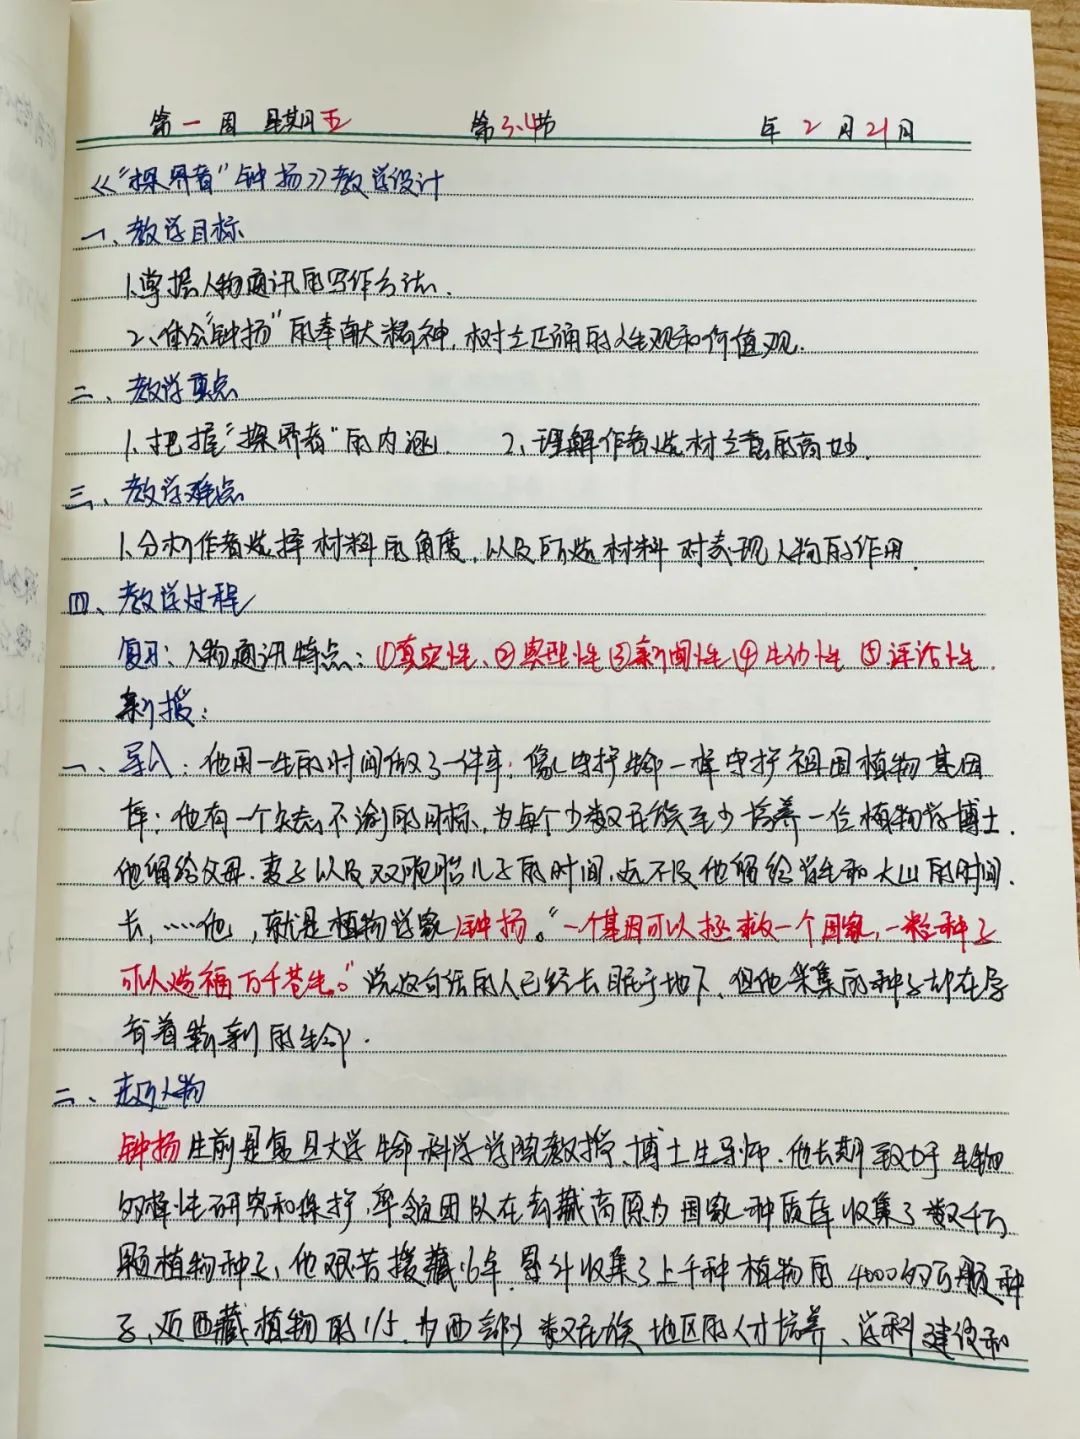 第一周 星期五 第3.4节 年 2 月 21日
《“探界者”钟扬》教学设计
一、教学目标
1.掌握人物通讯的写作方法.
2、体会“钟扬”的奉献精神,树立正确的人生观和价值观.
二、教学重点
1.把握“探界者”的内涵. 2、理解作者选材立意的高妙.
三、教学难点
1.分析作者选择材料的角度,以及所选材料对表现人物的作用.
四、教学过程
复习:人物通讯特点:①真实性、②典型性③新闻性④生动性⑤评论性.
新授:
一、导入:他用一生的时间做了一件事:像守护生命一样守护祖国植物基因
库;他有一个矢志不渝的目标,为每个少数民族至少培养一位植物学博士.
他留给父母.妻子以及双胞胎儿子的时间,远不及他留给学生和大山的时间
长,……他,就是植物学家钟扬。“一个基因可以拯救一个国家,一粒种子
可以造福万千苍生。”说这句话的人已经长眠于地下,但他采集的种子却在孕
育着崭新的生命.
二、走近人物
钟扬生前是复旦大学生命科学学院教授、博士生导师.他长期致力于生物
多样性研究和保护,率领团队在青藏高原为国家种质库收集了数千万
颗植物种子、他艰苦援藏16年.累计收集了上千种植物的4000多万颗种
子,近西藏植物的1/5.为西部少数民族地区的人才培养、学科建设和